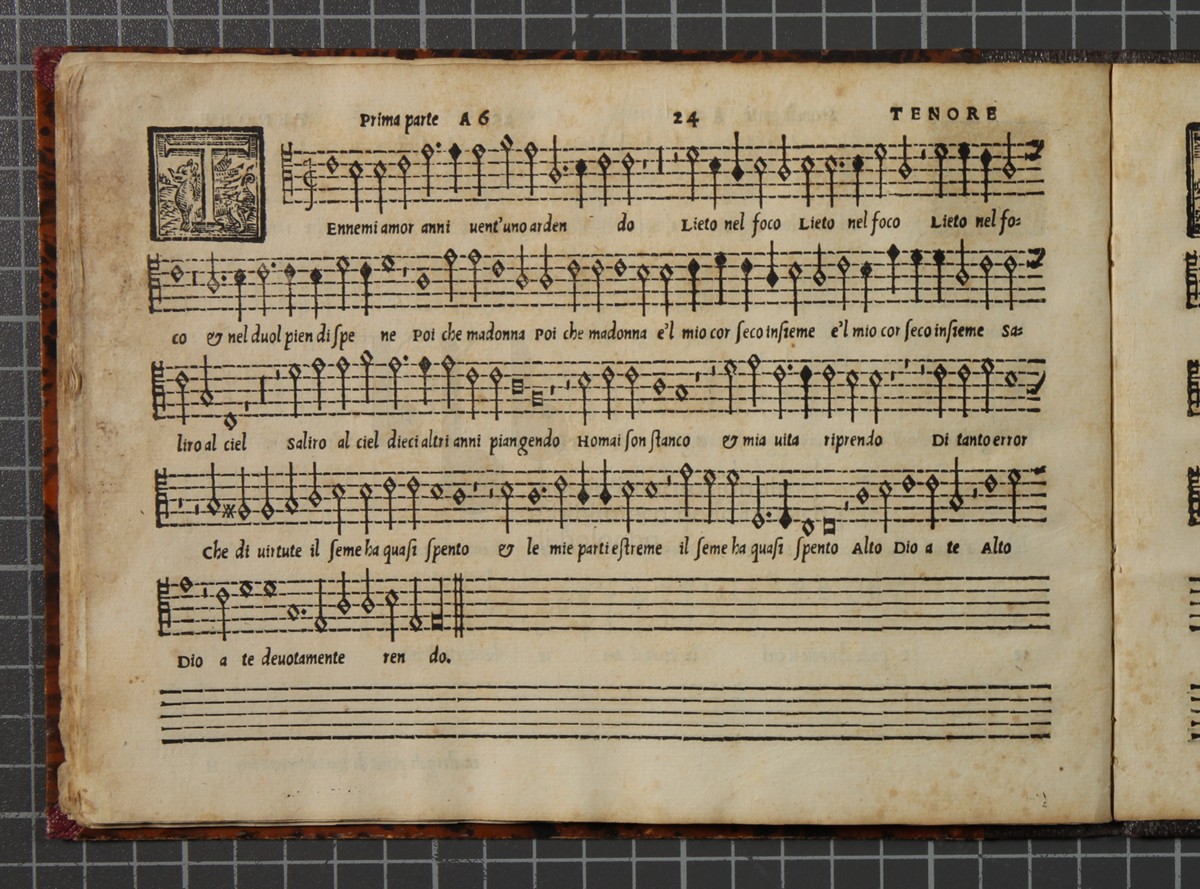 Prima parte A 6 24 TENORE
T
Ennemi amor anni uent'uno arden do Lieto nel foco Lieto nel foco Lieto nel fo=
co & nel duol pien di ſpe ne Poi che madonna Poi che madonna e'l mio cor ſeco inſieme e'l mio cor ſeco inſieme Sa=
liro al ciel Saliro al ciel dieci altri anni piangendo Homai ſon ſtanco & mia uita riprendo Di tanto error
Che di uirtute il ſeme ha quaſi ſpento & le mie parti eſtreme il ſeme ha quaſi ſpento Alto Dio a te Alto
Dio a te deuotamente ren do.